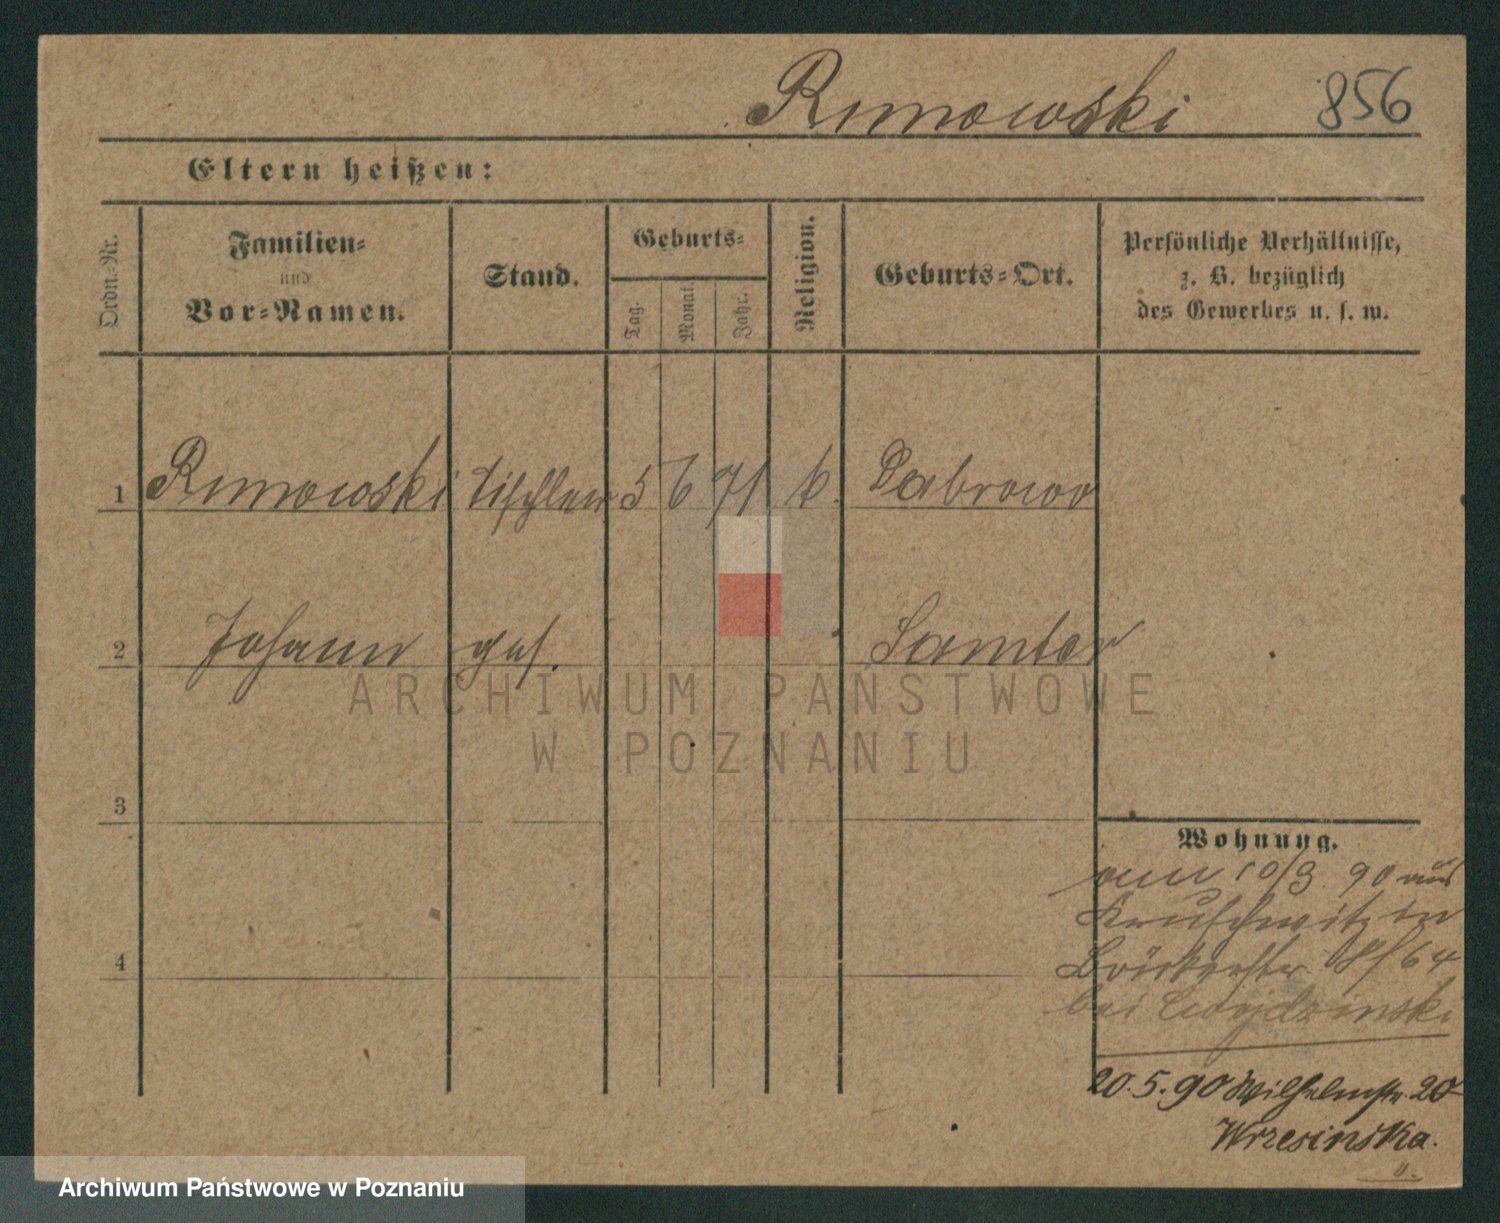 Rumowski 856
Eltern heißen:
Ordn.-Nr.
Familien-
und
Vor-Namen.
Stand.
Geburts-
Tag.
Monat.
Jahr.
Religion.
Geburts-Ort.
Persönliche Verhältnisse,
z. B. bezüglich
des Gewerbes u. s. w.
1 Rumowski Tischler 5 6 71 k. Dabrowo
2 Johann ges. Samter
3
4
Wohnung.
am 10/3 90 aus
Kruschwitz in
64
bei
20.5.90 Wilhelmstr. 20
Wrzesinska.
ARCHIWUM PAŃSTWOWE
W POZNANIU
Archiwum Państwowe w Poznaniu